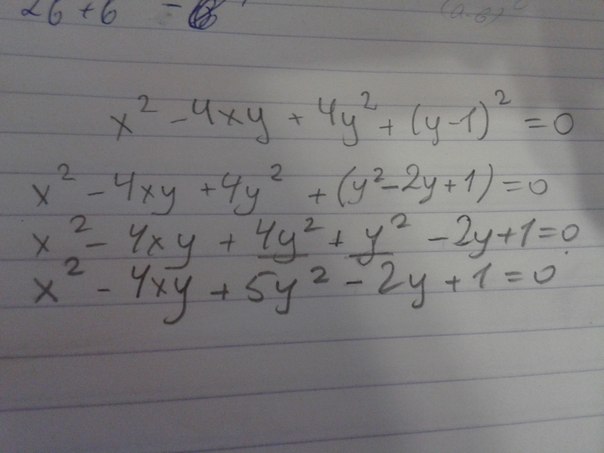 2б + б -
x² - 4xy + 4y² + (y-1)² = 0
x² - 4xy + 4y² + (y² - 2y + 1) = 0
x² - 4xy + 4y² + y² - 2y + 1 = 0
x² - 4xy + 5y² - 2y + 1 = 0